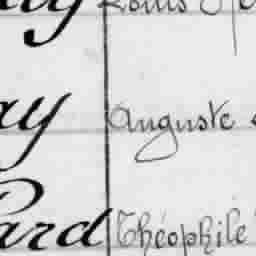 Louis
ay Auguste
ard Théophile